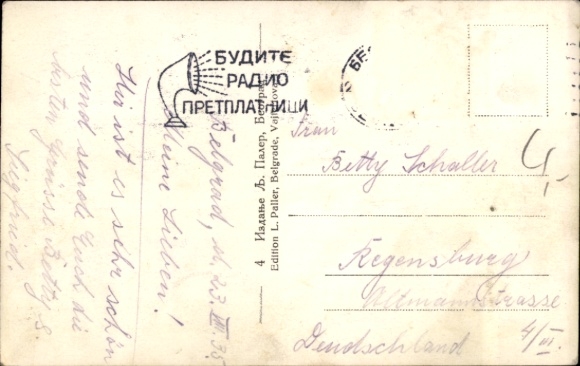 БУДИТЕ
РАДИО
ПРЕТПЛАТНИЦИ
Belgrad, d. 23. III 35
Meine Lieben!
Hier ist es sehr schön
und sende Euch die
besten Grüsse Betty S.
Siegfried.
4 Издање Љ. Палер, Београд,
Edition L. Paller, Belgrade,
Frau
Betty Schaller
Regensburg
Altmannstrasse
4/III.
Deudschland
4,-